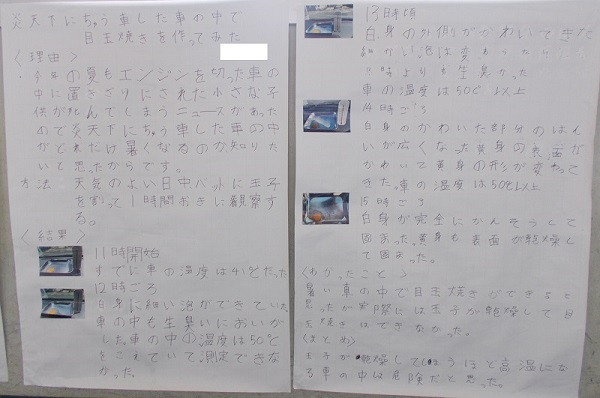 炎天下にちゅう車した車の中で
目玉焼きを作ってみた
〈理由〉
・今年の夏もエンジンを切った車の
中に置きざりにされた小さな子
供が死んでしまうニュースがあった
ので炎天下にちゅう車した車の中
がどれだけ暑くなるのか知りた
いと思ったからです。
方法 天気のよい日中バットに玉子
を割って1時間おきに観察す
る。
〈結果〉
11時開始
すでに車の温度は41℃だった
12時ごろ
白身に細い泡ができていた
車の中も生臭いにおいが
した。車の中の温度は50℃
をこえていて測定できな
かった。
13時頃
白身の外側がかわいてきた
細かい泡は変わらない
11時よりも生臭かった
車の温度は50℃以上
14時ごろ
白身のかわいた部分のはん
いが広くなった黄身の表面が
かわいて黄身の形が変わって
きた。車の温度は50℃以上
15時ごろ
白身が完全にかんそうして
固まった。黄身も表面が乾燥し
て固まった。
〈わかったこと〉
暑い車の中で目玉焼きができると
思ったが実際には玉子が乾燥して目
玉焼きはできなかった。
〈まとめ〉
玉子が乾燥してしまうほど高温にな
る車の中は危険だと思った。